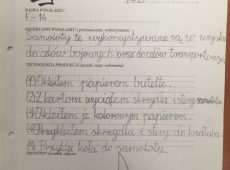 NAZWA WYNALAZKU
F-16
KRÓTKI OPIS WYNALAZKU (przeznaczenie, wykorzystanie)
Samoloty te wykorzystywane są w wojsku
do celów bojowych oraz do celów transportowych
TECHNOLOGIA PRODUKCJI (sposób, etapy wykonania)
(1) Okleiłem papierem butelkę.
(2) Z kartonu wyciąłem skrzydła i stery samolotu.
(3) Okleiłem je kolorowym papierem.
(4) Przykleiłem skrzydła i stery do kadłuba.
(5) Przykleiłem koła do samolotu.